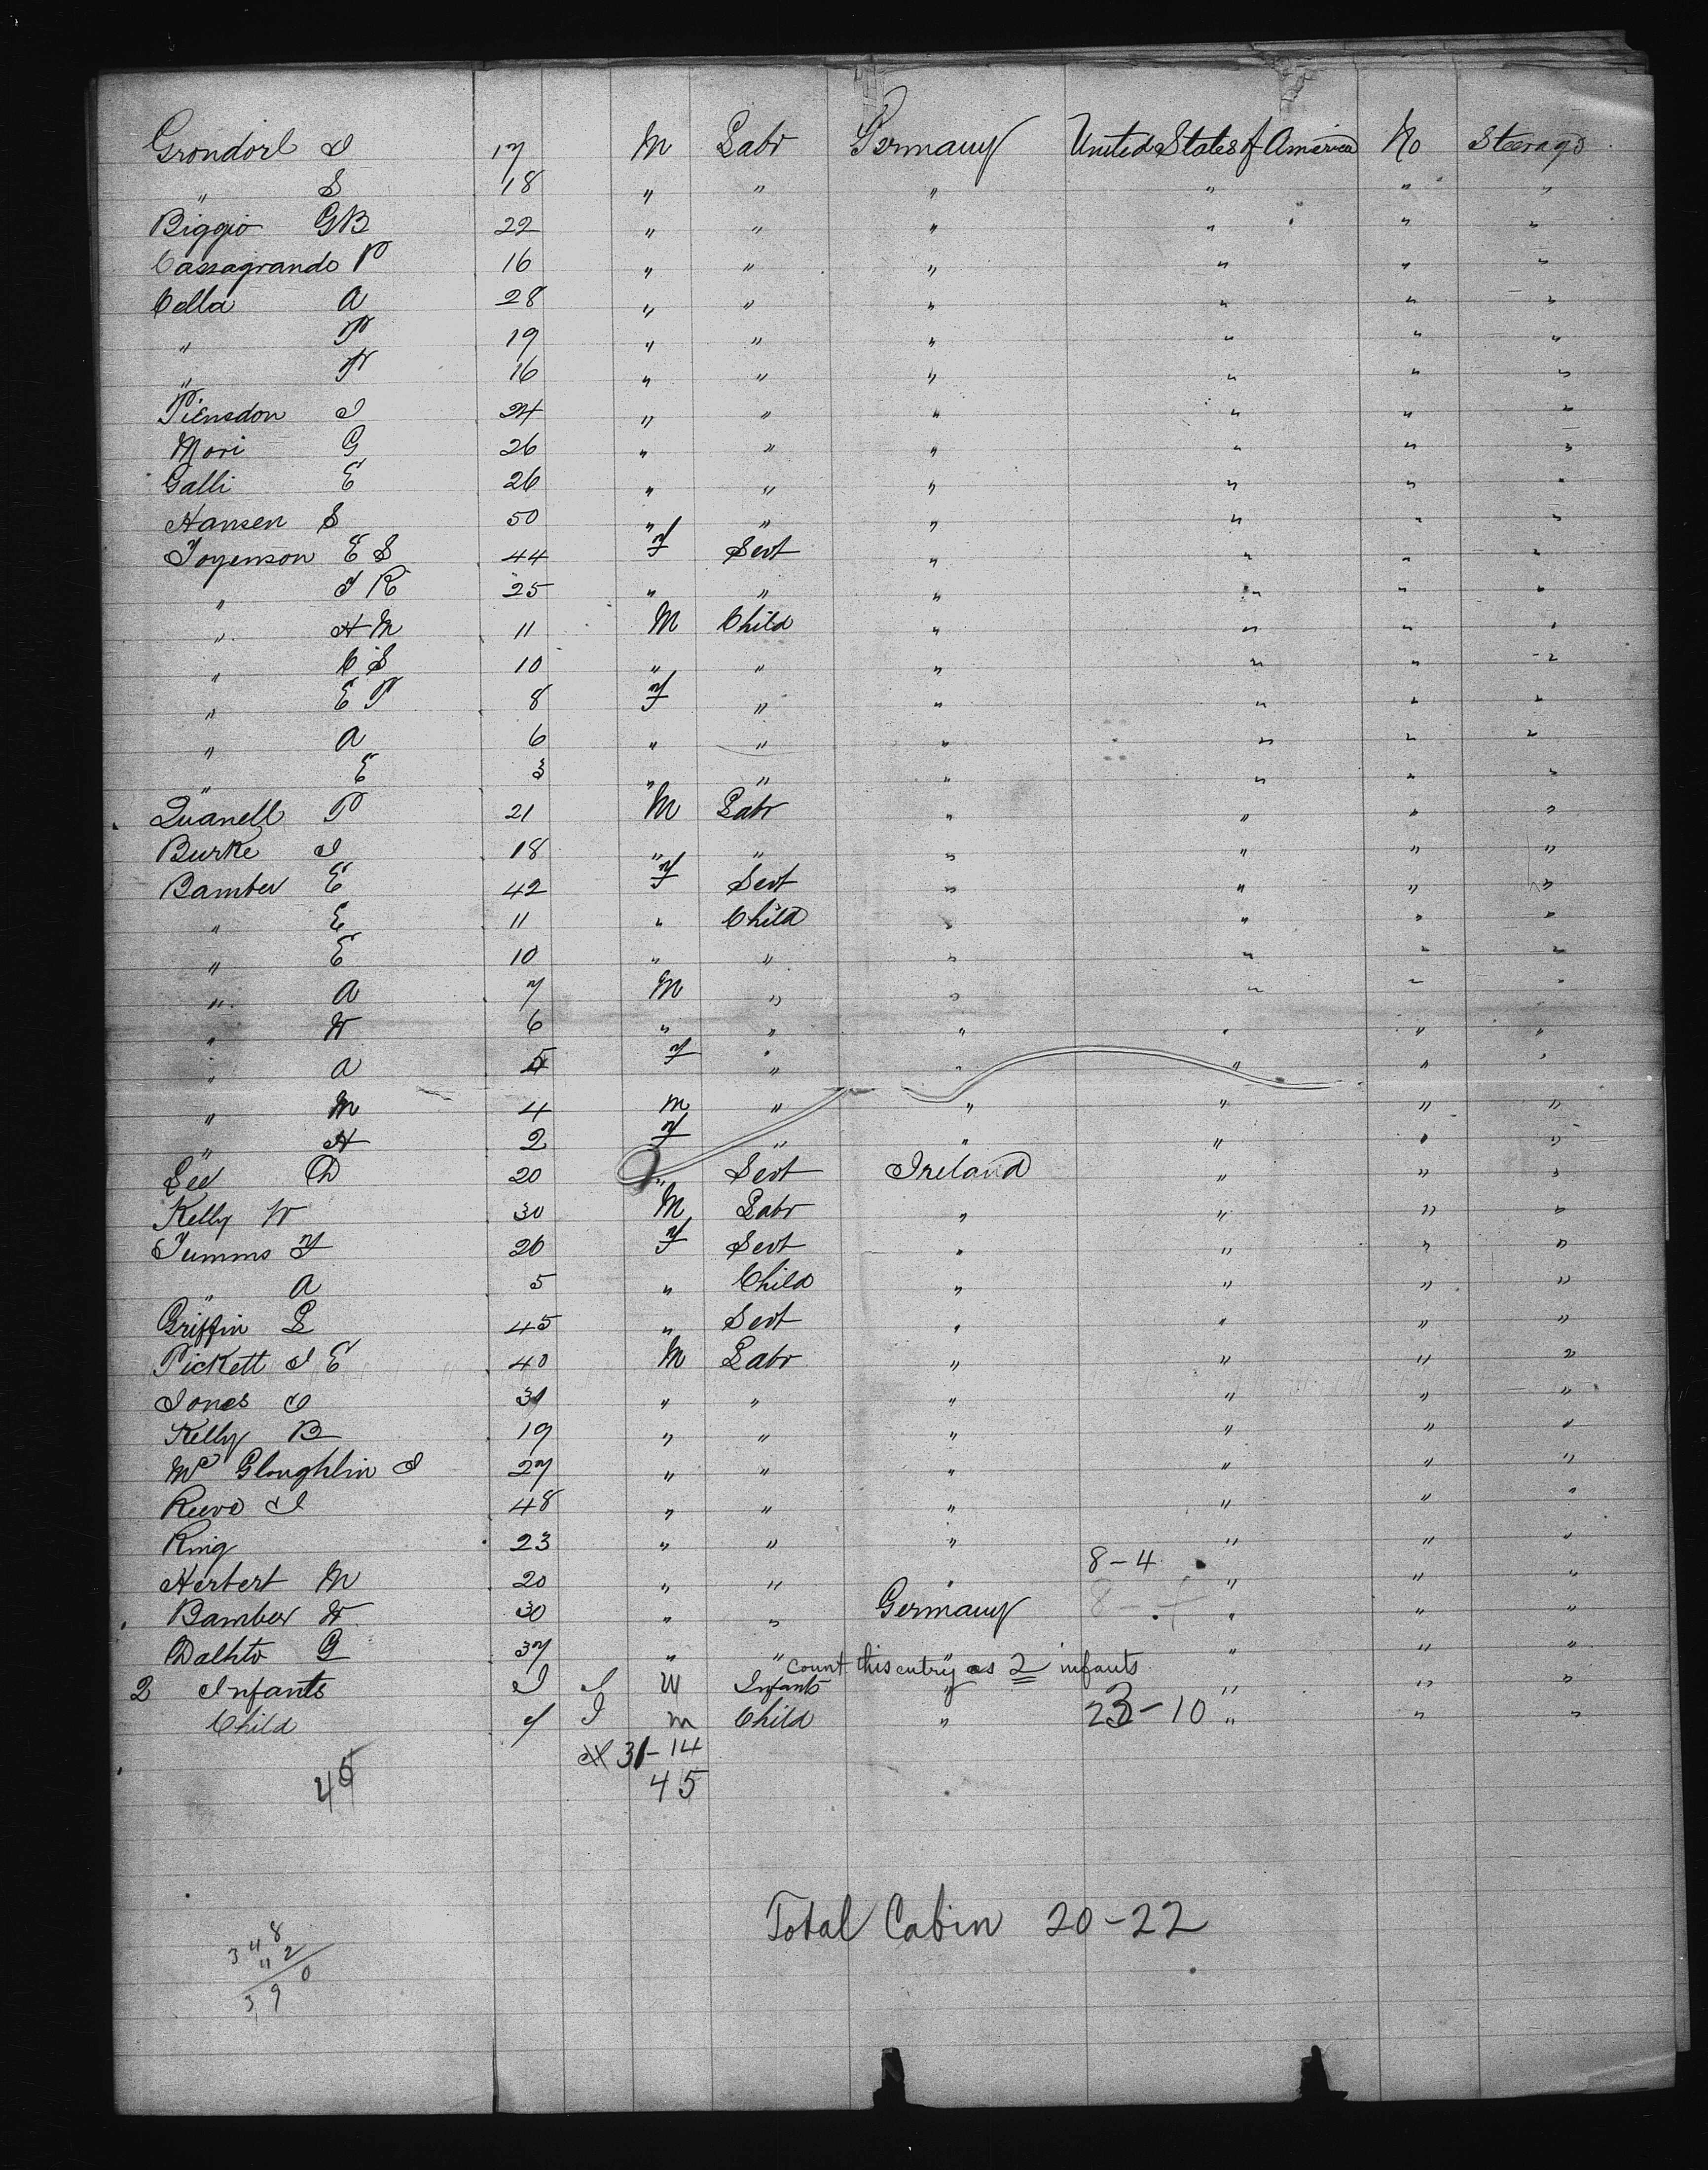 Grondorl J 17 M Labr Germany United States of America No Steerage
" S 18 " " " " " "
Biggio GB 22 " " " " " "
Cassagrande P 16 " " " " " "
Cella A 28 " " " " " "
" P 19 " " " " " "
" N 16 " " " " " "
Piensdon J 24 " " " " " "
Mori G 26 " " " " " "
Galli E 26 " " " " " "
Hansen S 50 " " " " " "
Joyenson E S 44 F Sevt " " " "
" J R 25 " " " " " "
" H M 11 M Child " " " "
" C S 10 " " " " " "
" E P 8 F " " " " "
" A 6 " " " " " "
" E 3 " " " " " "
Quanell P 21 M Labr " " " "
Burke J 18 " " " " " "
Bamber E 42 F Sevt " " " "
" E 11 " Child " " " "
" E 10 " " " " " "
" A 7 M " " " " "
" W 6 " " " " " "
" A 5 F " " " " "
" M 4 M " " " " "
" H 2 F " " " " "
Lee D 20 " Sevt Ireland " " "
Kelly W 30 M Labr " " " "
Tumms F 26 F Sevt " " " "
" A 5 " Child " " " "
Griffin L 45 " Sevt " " " "
Pickett J E 40 M Labr " " " "
Jones J 31 " " " " " "
Kelly B 19 " " " " " "
Mc Gloughlin J 27 " " " " " "
Reeve J 48 " " " " " "
King 23 " " " " " "
8-4
Herbert M 20 " " " " " "
Bamber W 30 " " Germany " " "
Dalhto G 37 " " " " " "
count this entry as 2 infants
2 Infants I I M Infants " " " "
Child 7 I M Child " 23-10 " " "
31-14
45
45
Total Cabin 20-22
348
42
390